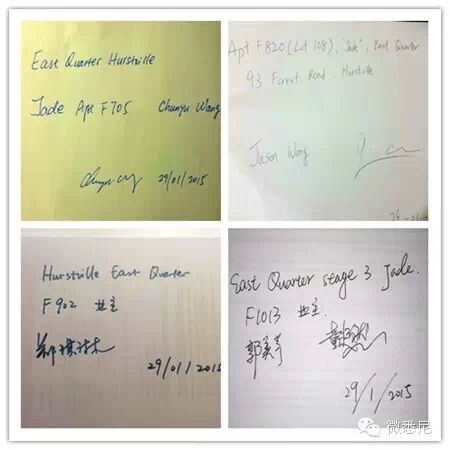 East Quarter Hurstville
Jade Apt F705 Chunyu Wang
29/01/2015
Apt F820 (Lot 108), "Jade", East Quarter
93 Forest Road, Hurstville
Jason Wang
Hurstville East Quarter
F902 业主
29/01/2015
East Quarter stage 3 Jade.
F1013 业主.
29/1/2015
微悉尼